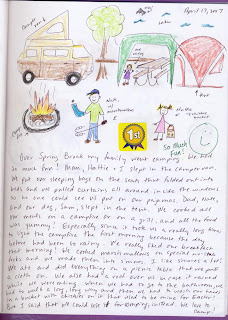 April 17, 2007
campervan
lake
tent
campfire
1st
So Much
Fun!
Over Spring Break my family went camping. We had
so much fun! Mom, Hattie + I slept in the campervan.
We put our sleeping bags on the seats that folded out into
beds and we pulled curtains all around inside the windows
so no one could see us put on our pajamas. Dad, Nate,
and our dog, Sam, slept in the tent. We cooked all
our meals on a campfire or on a grill, and all the food
was yummy! Especially since it took us a really long time
to light the campfire the first morning because the day
before had been so rainy. We really liked our breakfast
that morning! We cooked marshmallows on special
forks and we made them into s'mores. I like s'mores a lot!
We ate and did everything on a picnic table that we put
a cloth on. We also had a roof over us in case it rained
while we were eating. When we had to go to the bathroom, we
had to walk a long, long way and then we had to wash our hands
in a bucket with chickens on it that used to be mine for Easter.
But I said that we could use it for camping instead. We love to
camp!